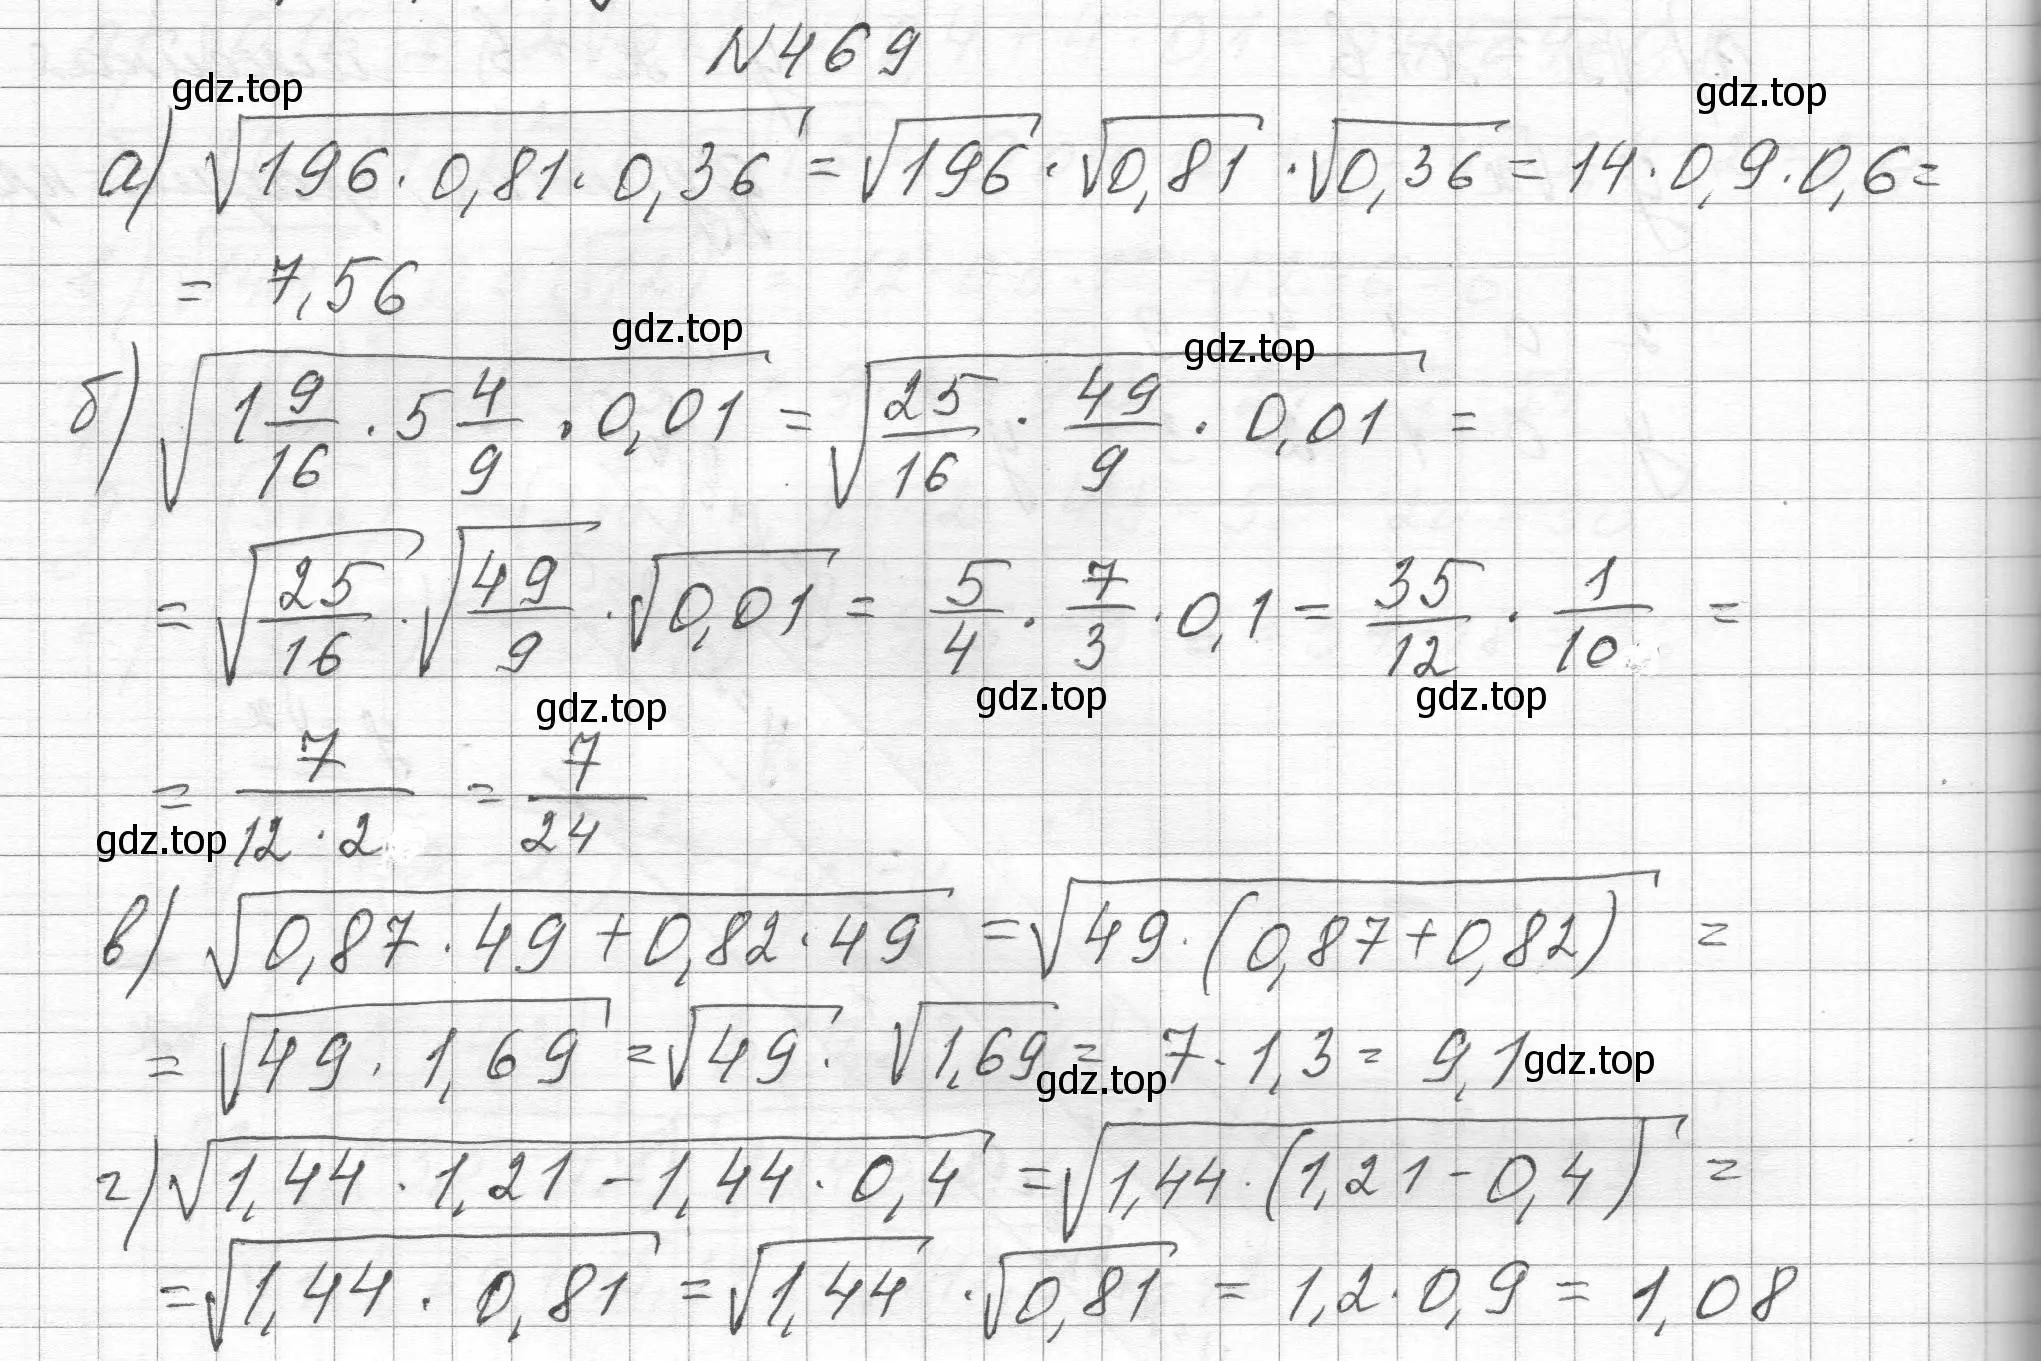 N469
gdz.top gdz.top
а) √(196·0,81·0,36) = √196·√0,81·√0,36 = 14·0,9·0,6 =
= 7,56
gdz.top gdz.top
б) √(1 9/16 · 5 4/9 · 0,01) = √(25/16 · 49/9 · 0,01) =
= √(25/16) · √(49/9) · √0,01 = 5/4 · 7/3 · 0,1 = 35/12 · 1/10 =
gdz.top gdz.top gdz.top
= 7/(12·2) = 7/24
gdz.top
в) √(0,87·49+0,82·49) = √(49·(0,87+0,82)) =
= √(49·1,69) = √49 · √1,69 = 7·1,3 = 9,1
gdz.top gdz.top
г) √(1,44·1,21-1,44·0,4) = √(1,44·(1,21-0,4)) =
= √(1,44·0,81) = √1,44 · √0,81 = 1,2·0,9 = 1,08